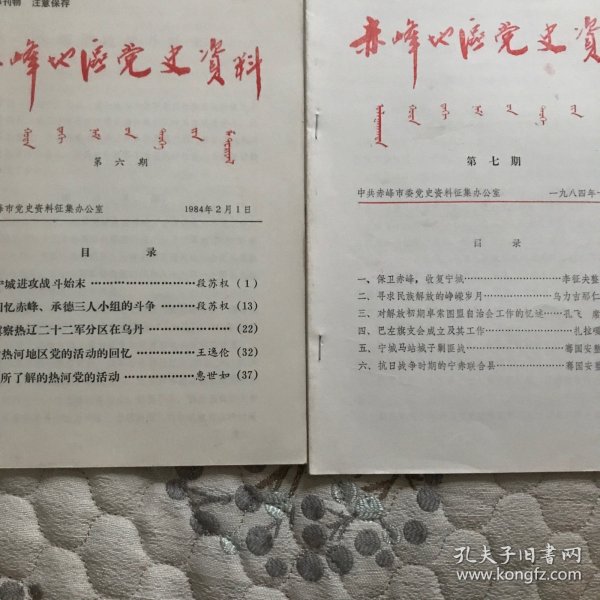 刊物 注意保存
峰地区党史资料
第六期
市党史资料征集办公室 1984年2月1日
目录
宁城进攻战斗始末 …………………… 段苏权 (1)
回忆赤峰、承德三人小组的斗争 ……… 段苏权 (13)
察热辽二十二军分区在乌丹 …………… (22)
热河地区党的活动的回忆 …………… 王逸伦 (32)
所了解的热河党的活动 ……………… 惠世如 (37)
赤峰地区党史资
第七期
中共赤峰市委党史资料征集办公室 一九八四年
目录
一、保卫赤峰,收复宁城…………………李征夫整
二、寻求民族解放的峥嵘岁月……………乌力吉那仁
三、对解放初期卓索图盟自治会工作的忆述……孔飞
四、巴左旗支会成立及其工作……………扎拉嘎
五、宁城马站城子剿匪战…………………骞国安整
六、抗日战争时期的宁赤联合县…………骞国安整
孔夫子旧书网
www.kongfz.com